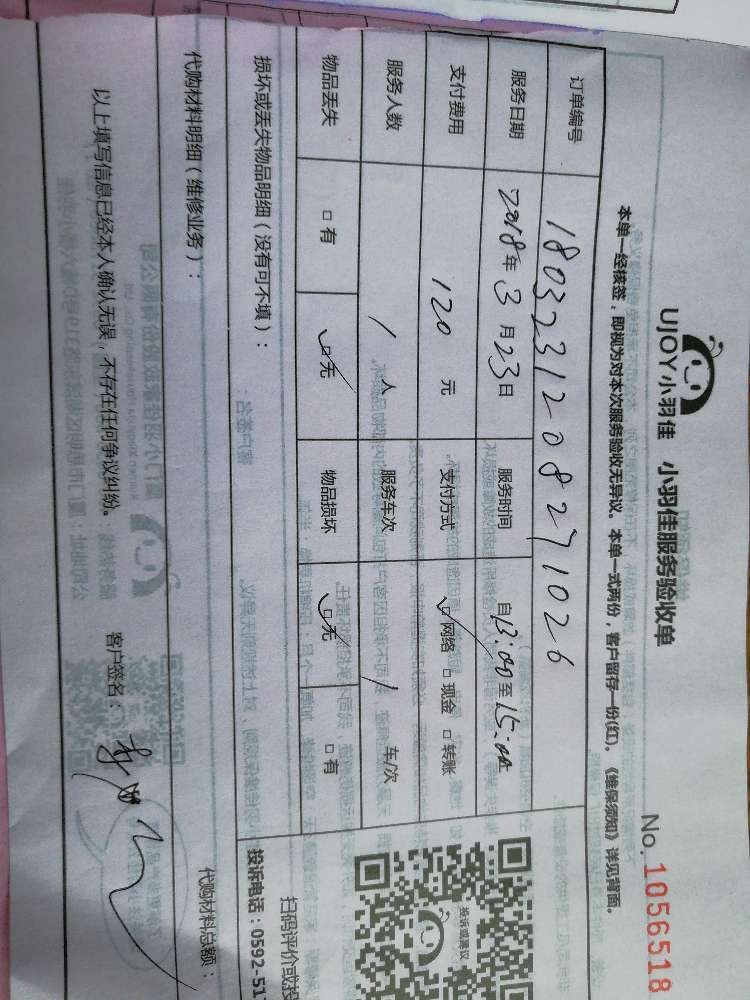 UJOY小羽佳 小羽佳服务验收单
No. 1056518
本单一经核签，即视为对本次服务验收无异议。本单一式两份，客户留存一份(红)。《维保须知》详见背面。
订单编号 1803231208271026
服务日期 2018年3月23日 服务时间 自13:00至15:00止
支付费用 120元 支付方式 ☑网络 □现金 □转账
服务人数 1人 服务车次 1车/次
物品丢失 □有 ☑无 物品损坏 ☑无 □有
损坏或丢失物品明细（没有可不填）：
投诉或建议
扫码评价或投
投诉电话：0592-51
代购材料明细（维修业务）：
代购材料总额：
以上填写信息已经本人确认无误，不存在任何争议纠纷。
客户签名：